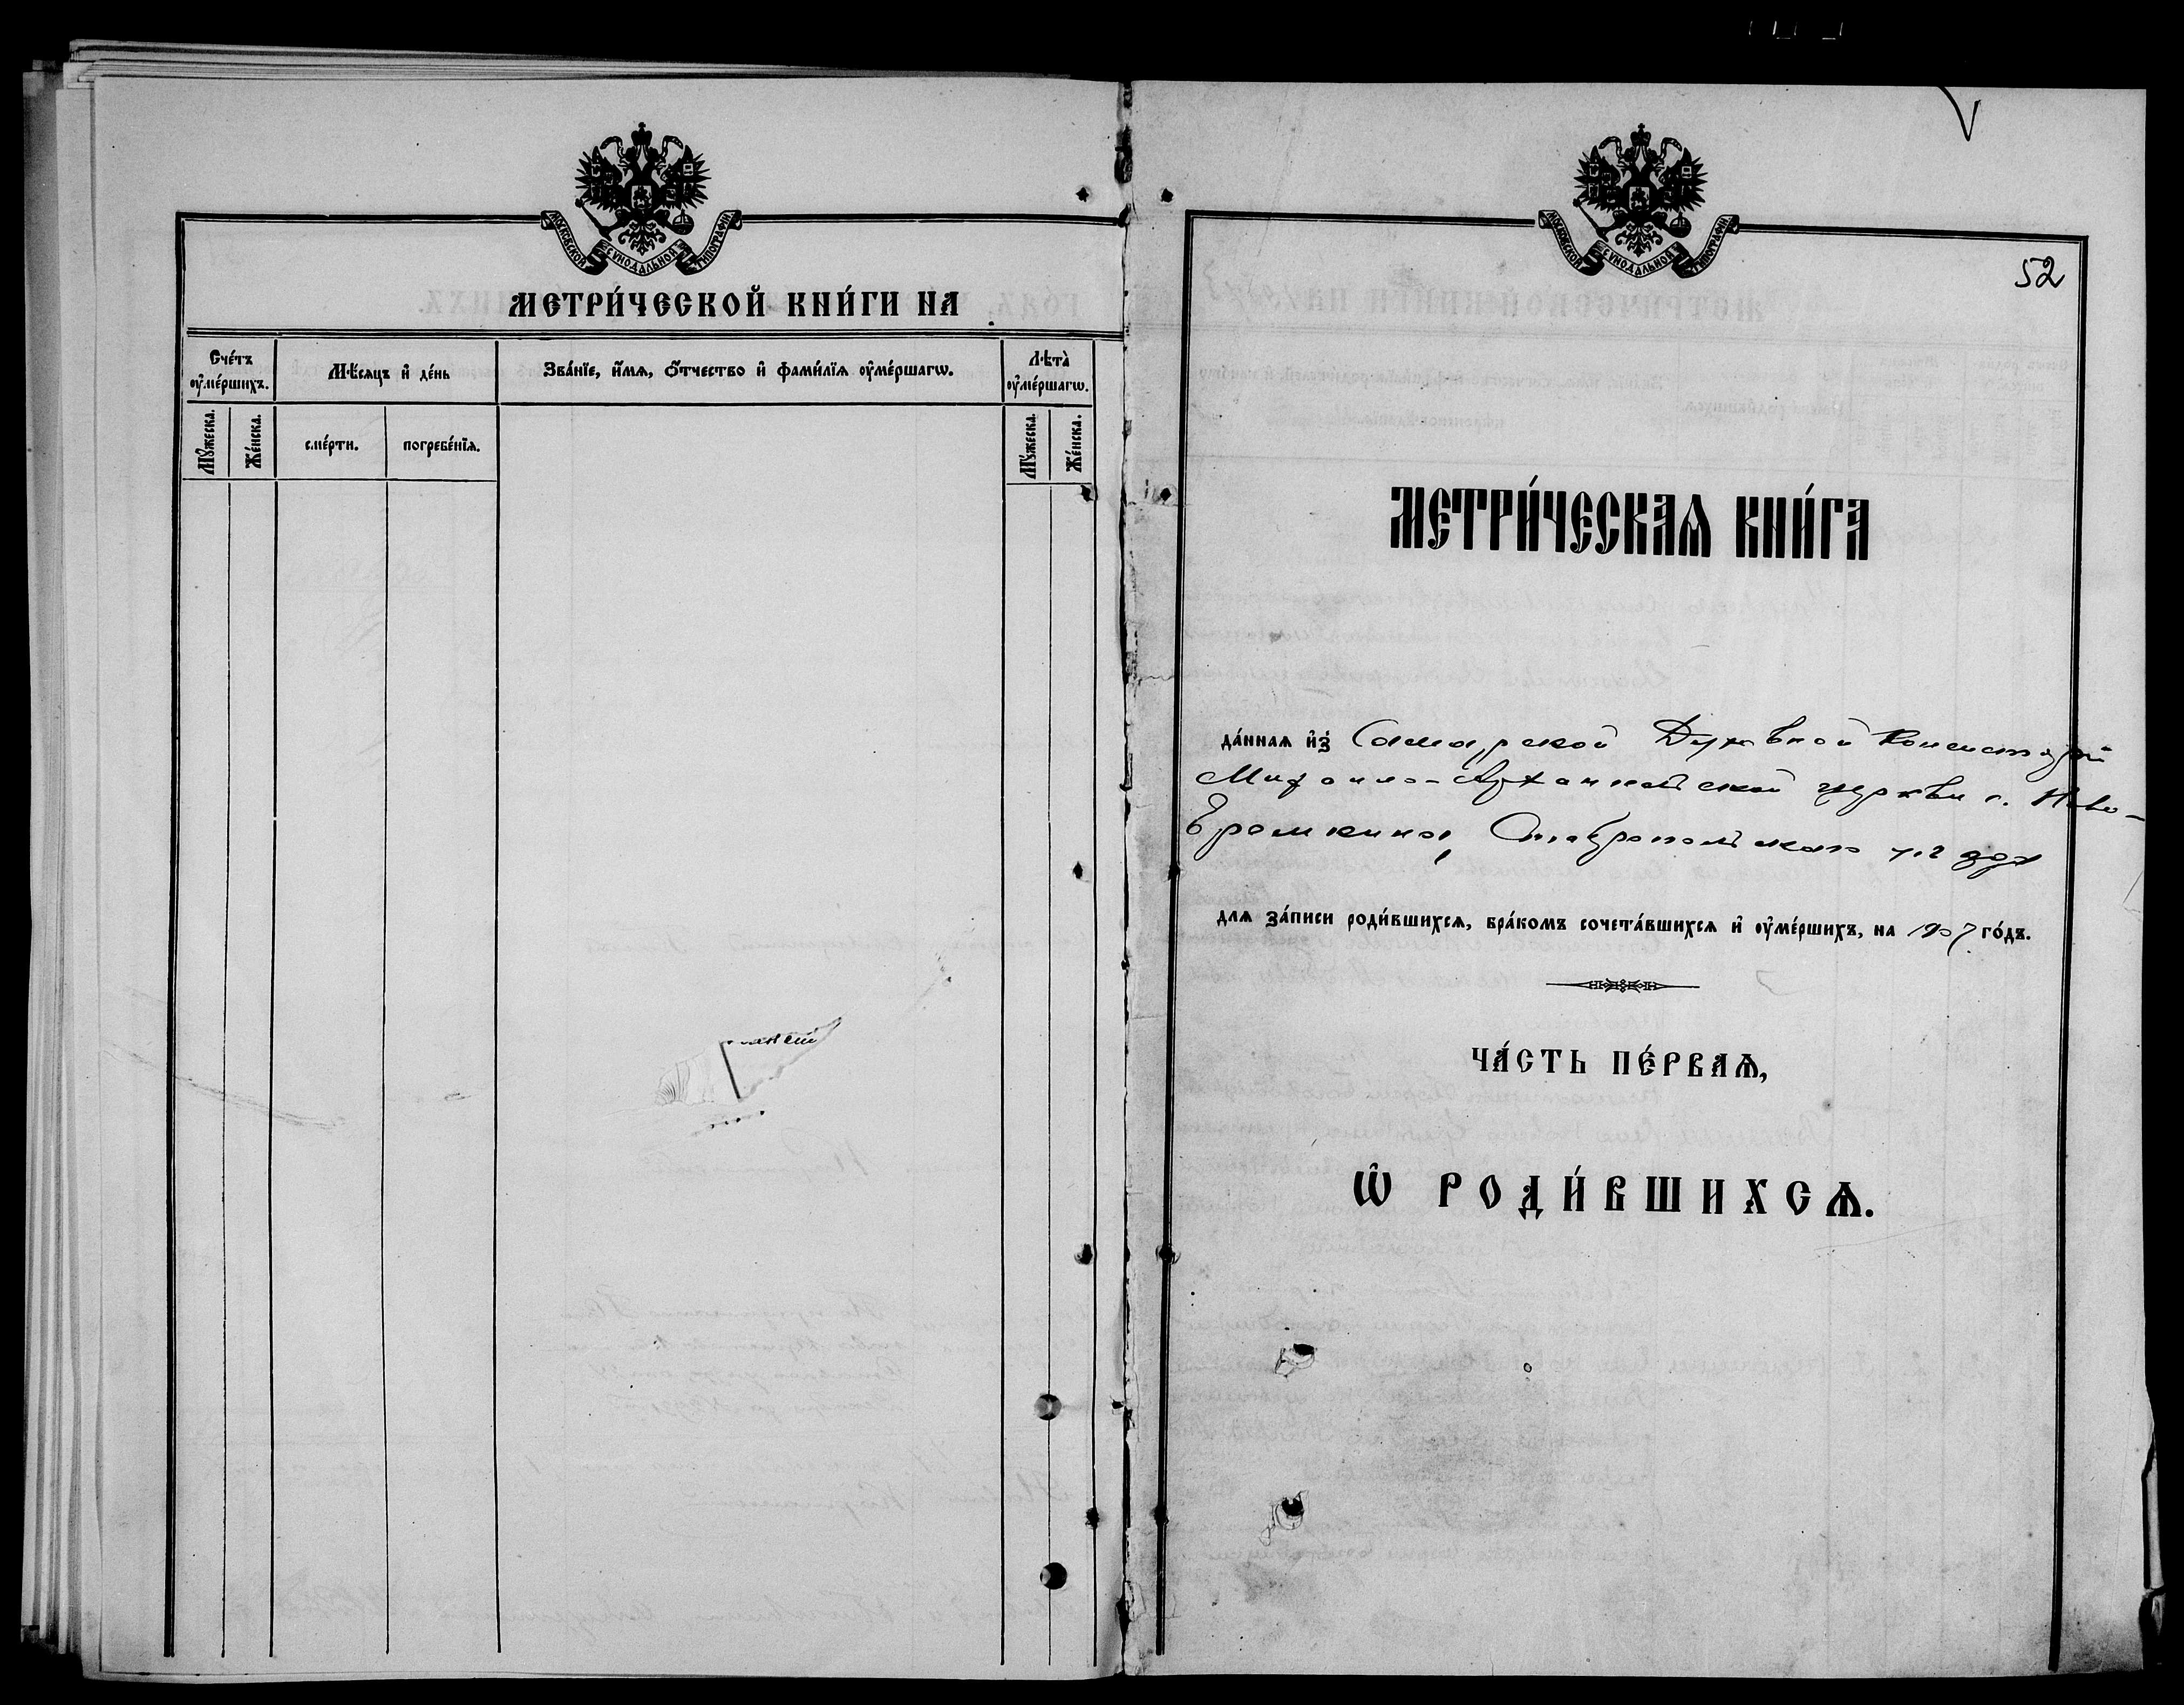 МОСКОВСКОЙ СѴНОДАЛЬНОЙ ТИПОГРАФІИ
МЕТРИ́ЧЕСКОЙ КНИ́ГИ НА
Сче́тъ ᲂу҆ме́ршихъ.
Мѣ́сяцъ и҆ де́нь
Зва́нїе, и҆́мѧ, ѻ҆́тчество и҆ фами́лїѧ ᲂу҆ме́ршагѡ.
Лѣта̀ ᲂу҆ме́ршагѡ.
Мꙋ́жеска.
Же́нска.
сме́рти.
погребе́нїѧ.
Мꙋ́жеска.
Же́нска.
МОСКОВСКОЙ СѴНОДАЛЬНОЙ ТИПОГРАФІИ
52
МЕТРИ́ЧЕСКАѦ КНИ́ГА
да́ннаѧ и҆з̾ Самарской Духовной Консисторіи
Михаило-Архангельской церкви с. Ново-
Еремкина, Ставропольскаго уѣзда
длѧ за́писи роди́вшихсѧ, бра́комъ сочета́вшихсѧ и҆ ᲂу҆ме́ршихъ, на 1907 го́дъ.
ЧА́СТЬ ПЕ́РВАѦ,
Ѡ҆ РОДИ́ВШИХСѦ.